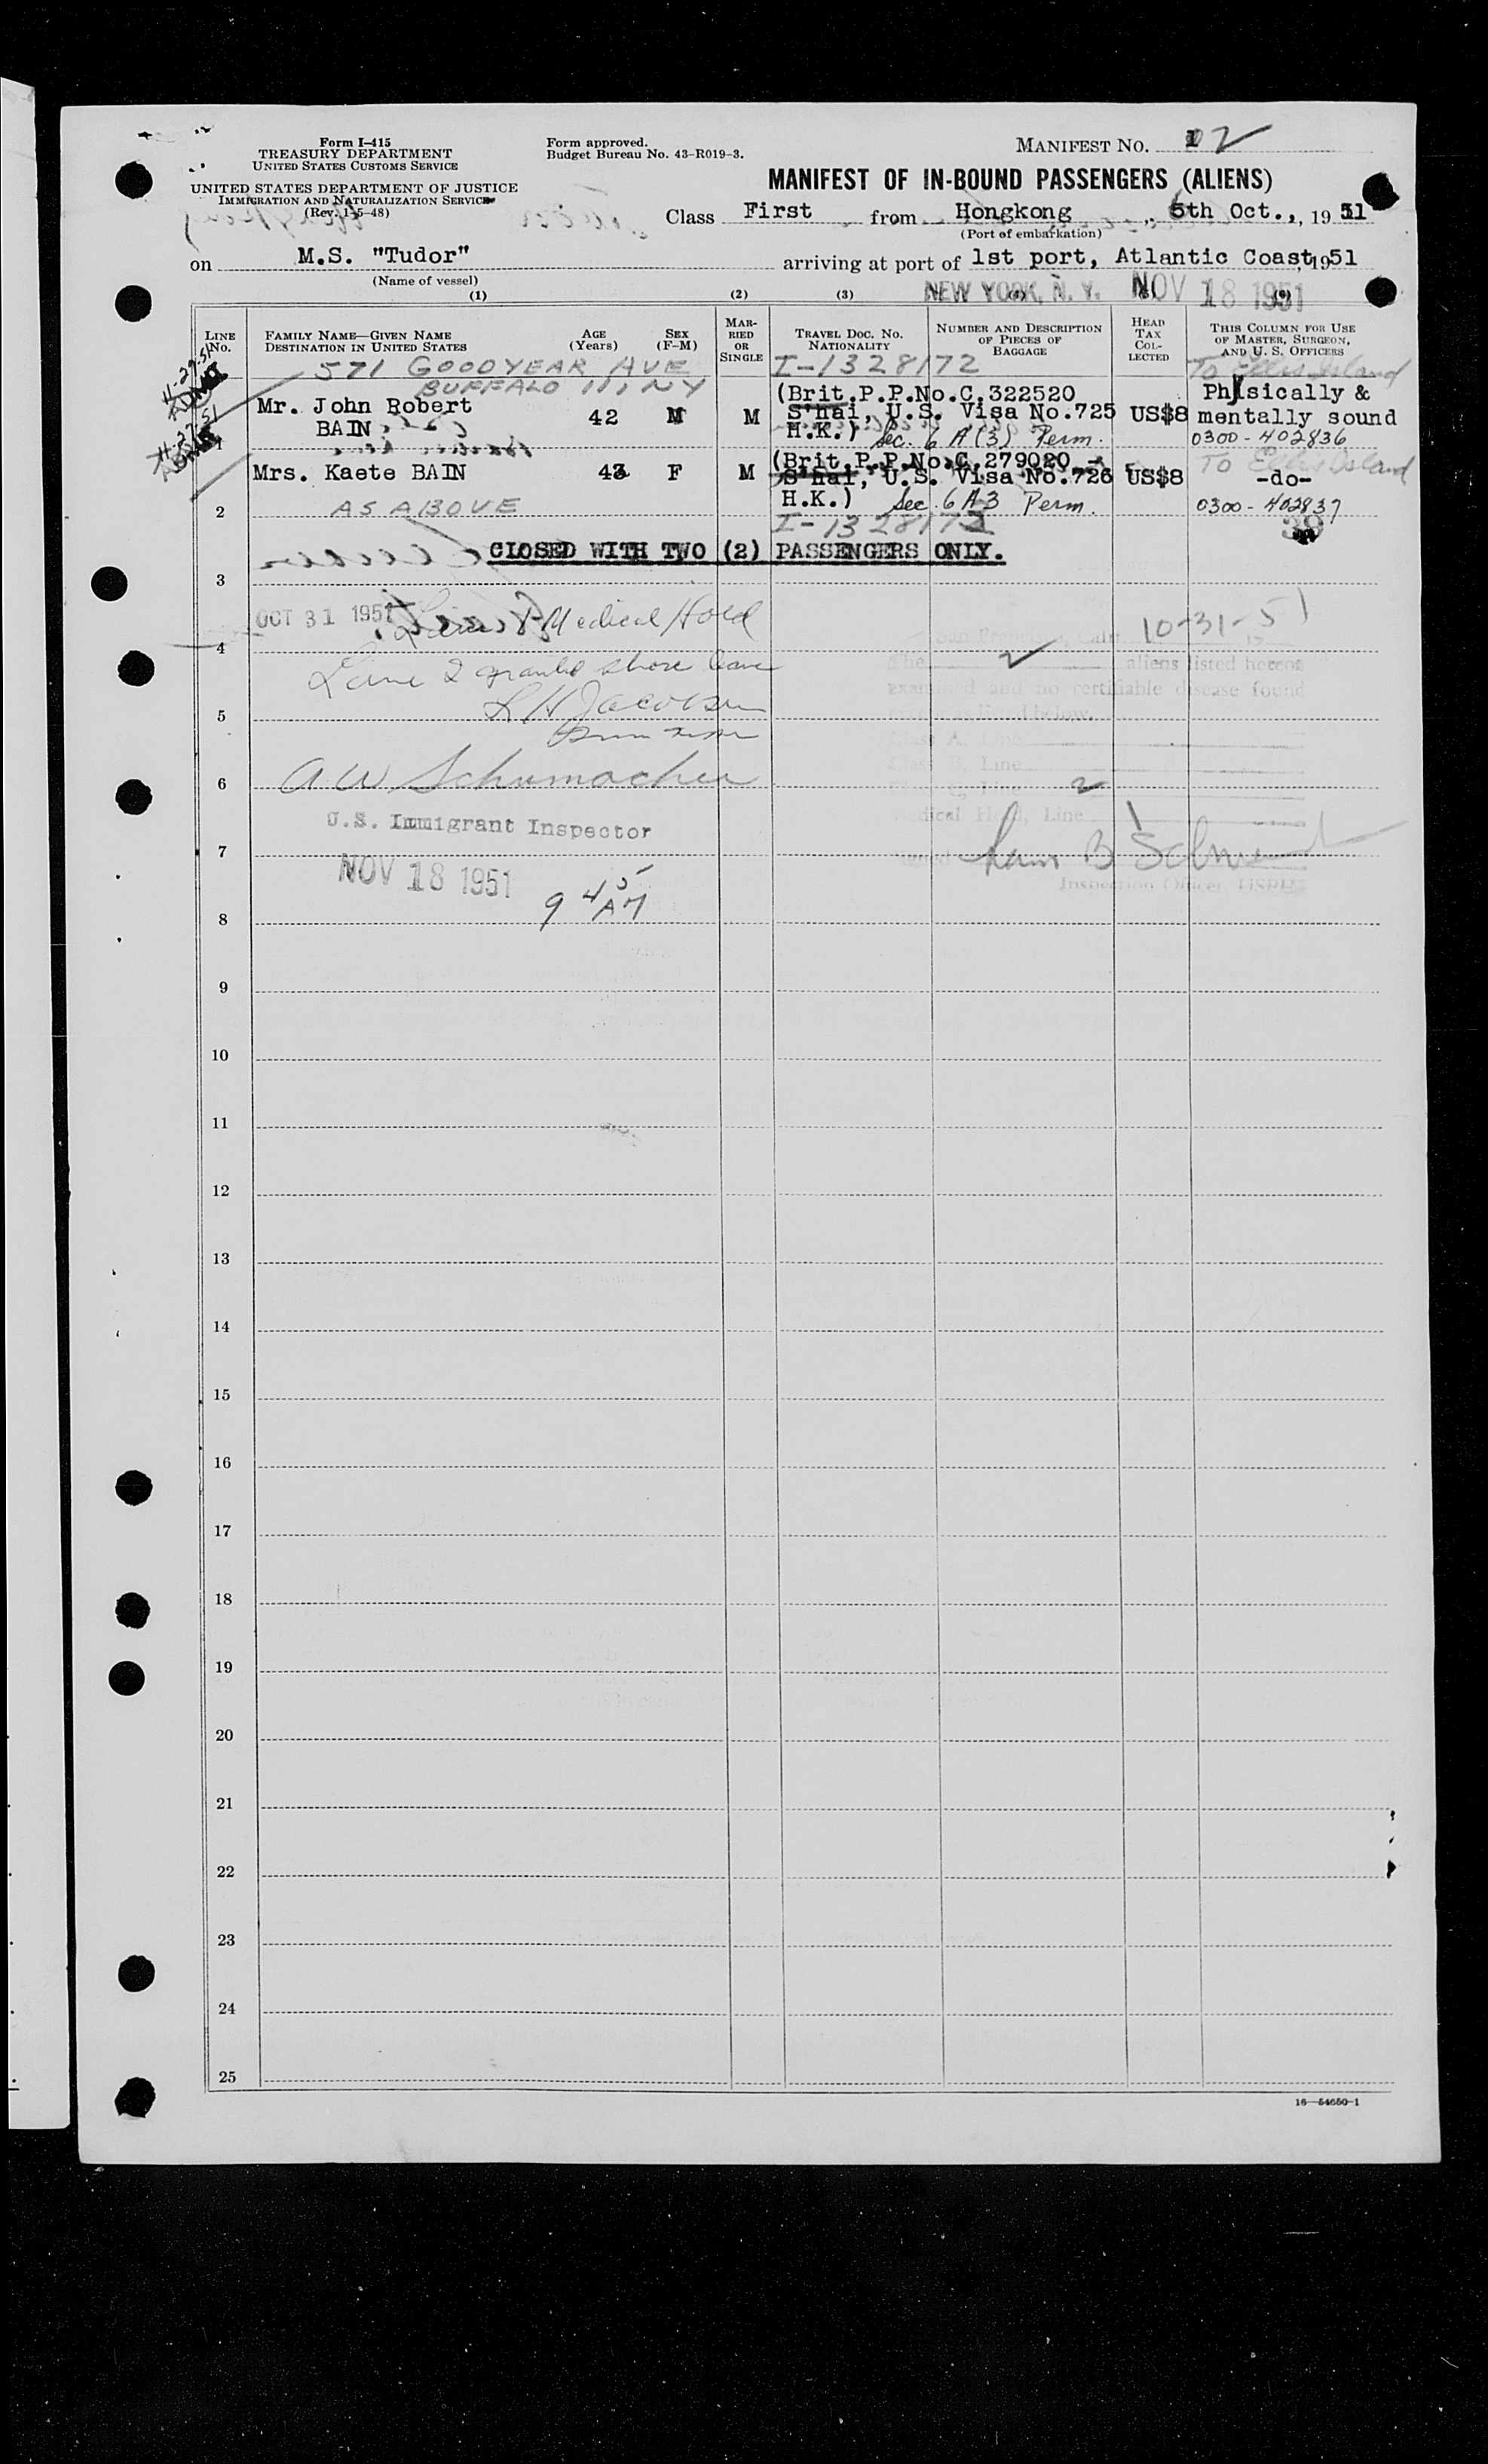 Form I-415
TREASURY DEPARTMENT
UNITED STATES CUSTOMS SERVICE
UNITED STATES DEPARTMENT OF JUSTICE
IMMIGRATION AND NATURALIZATION SERVICE
(Rev. 1-5-48)
Form approved.
Budget Bureau No. 43-R019-3.
MANIFEST NO. 2
MANIFEST OF IN-BOUND PASSENGERS (ALIENS)
Class First from Hongkong, 5th Oct., 1951
(Port of embarkation)
on M.S. "Tudor" arriving at port of 1st port, Atlantic Coast, 1951
(Name of vessel)
NEW YORK, N. Y. NOV 18 1951
(1) (2) (3)
LINE No.
FAMILY NAME—GIVEN NAME
DESTINATION IN UNITED STATES
AGE (Years)
SEX (F-M)
MARRIED OR SINGLE
TRAVEL DOC. NO.
NATIONALITY
NUMBER AND DESCRIPTION OF PIECES OF BAGGAGE
HEAD TAX COLLECTED
THIS COLUMN FOR USE OF MASTER, SURGEON, AND U. S. OFFICERS
571 GOODYEAR AVE I-1328172 To Ellis Island
BUFFALO 11, NY
11-27-51
11-27-51
1 Mr. John Robert BAIN 42 M M (Brit.P.P.No.C.322520 S'hai, U.S. Visa No.725 H.K.) US$8 Physically & mentally sound
Sec. 6 A(3) Perm. 0300-402836
2 Mrs. Kaete BAIN 43 F M (Brit.P.P.No.C.279020 S'hai, U.S. Visa No.726 H.K.) US$8 -do-
To Ellis Island
AS ABOVE Sec. 6 A3 Perm. 0300-402837
I-1328172
39
CLOSED WITH TWO (2) PASSENGERS ONLY.
3
OCT 31 1951 Line 1 Medical Hold
San Francisco, Calif. 10-31-51
4
The 2 aliens listed hereon
Line 2 granted shore leave
examined and no certifiable disease found
L H Jacobsen
5
Class A, Line
Class B, Line
A W Schumacher
6
Class C, Line 2
U.S. Immigrant Inspector
Medical Hold, Line 1
7
Inspection Officer USPHS
NOV 18 1951
9 45 AM
8
9
10
11
12
13
14
15
16
17
18
19
20
21
22
23
24
25
16—54650-1